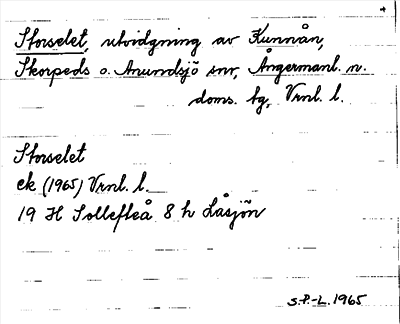 Storselet, utvidgning av Kunnån,
Skorpeds o. Anundsjö snr, Ångermanl. n.
doms. tg, Vrnl. l.
Storselet
ek (1965) Vrnl. l.
19 H Sollefteå 8 h Låsjön
S.P.-L. 1965